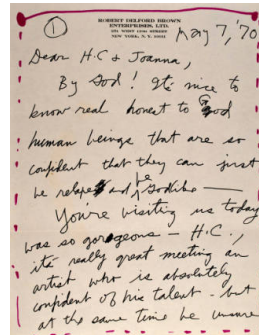 1
ROBERT DELFORD BROWN
ENTERPRISES, LTD.
251 WEST 13th STREET
NEW YORK, N. Y. 10011
May 7, '70
Dear H.C & Joanna,
By God! It's nice to
know real honest to God
human beings that are so
confident that they can just
be relaxed and be Godlike —
You're visiting us today
was so gorgeous — H.C.,
its really great meeting an
artist who is absolutely
confident of his talent - but
at the same time be unsure